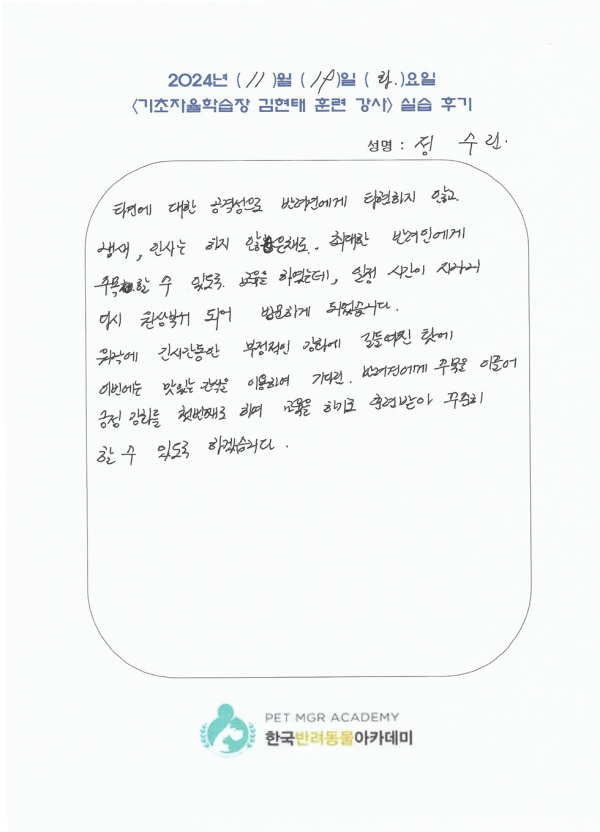 2024년 (11)월 (19)일 (화.)요일
<기초자율학습장 김현태 훈련 강사> 실습 후기
성명 : 정 수린.
타견에 대한 공격성으로 반려견에게 타협하지 않고
냄새, 인사는 하지 않은채로. 최대한 반려인에게
주목할 수 있도록 교육을 하였는데, 일정 시간이 지나서
다시 원상복귀 되어 방문하게 되었습니다.
워낙에 긴시간동안 부정적인 강화에 길들여진 탓에
이번에는 맛있는 간식을 이용하여 기다란. 반려견에게 주목을 이끌어
긍정 강화를 첫번째로 하여 교육을 하기로 훈련받아 꾸준히
할 수 있도록 하겠습니다.
PET MGR ACADEMY
한국반려동물아카데미